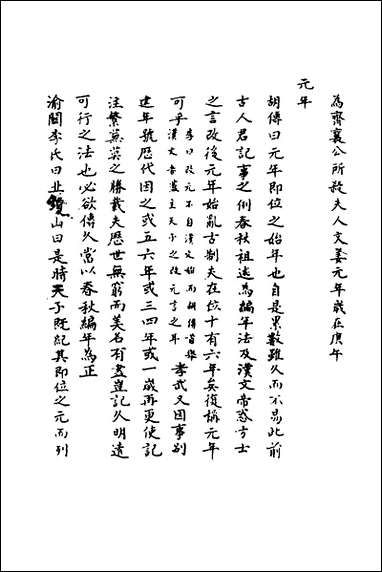 為齊襄公所殺夫人文姜元年歲在庚午
元年
胡傳曰元年即位之始年也自是累數雖久而不易此前
古人君記事之例春秋祖述為編年法及漢文帝惑方士
之言改後元年始亂古制夫在位十有六年矣復稱元年
可乎李曰改元不自漢文始而胡傳首舉漢文者盖主天子之改元言之耳孝武又因事別
建年號歷代因之或五六年或三四年或一歲再更使記
注繁蕪莫之勝載夫歷世無窮而美名有盡豈記久明遠
可行之法也必欲傳久當以春秋編年為正
渝關李氏曰山曰是時天子既紀其即位之元而列